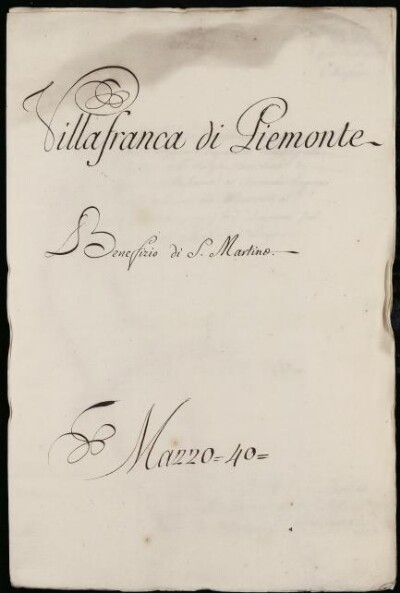 Villafranca di Piemonte
Benefizio di S. Martino.
Mazzo = 40 =